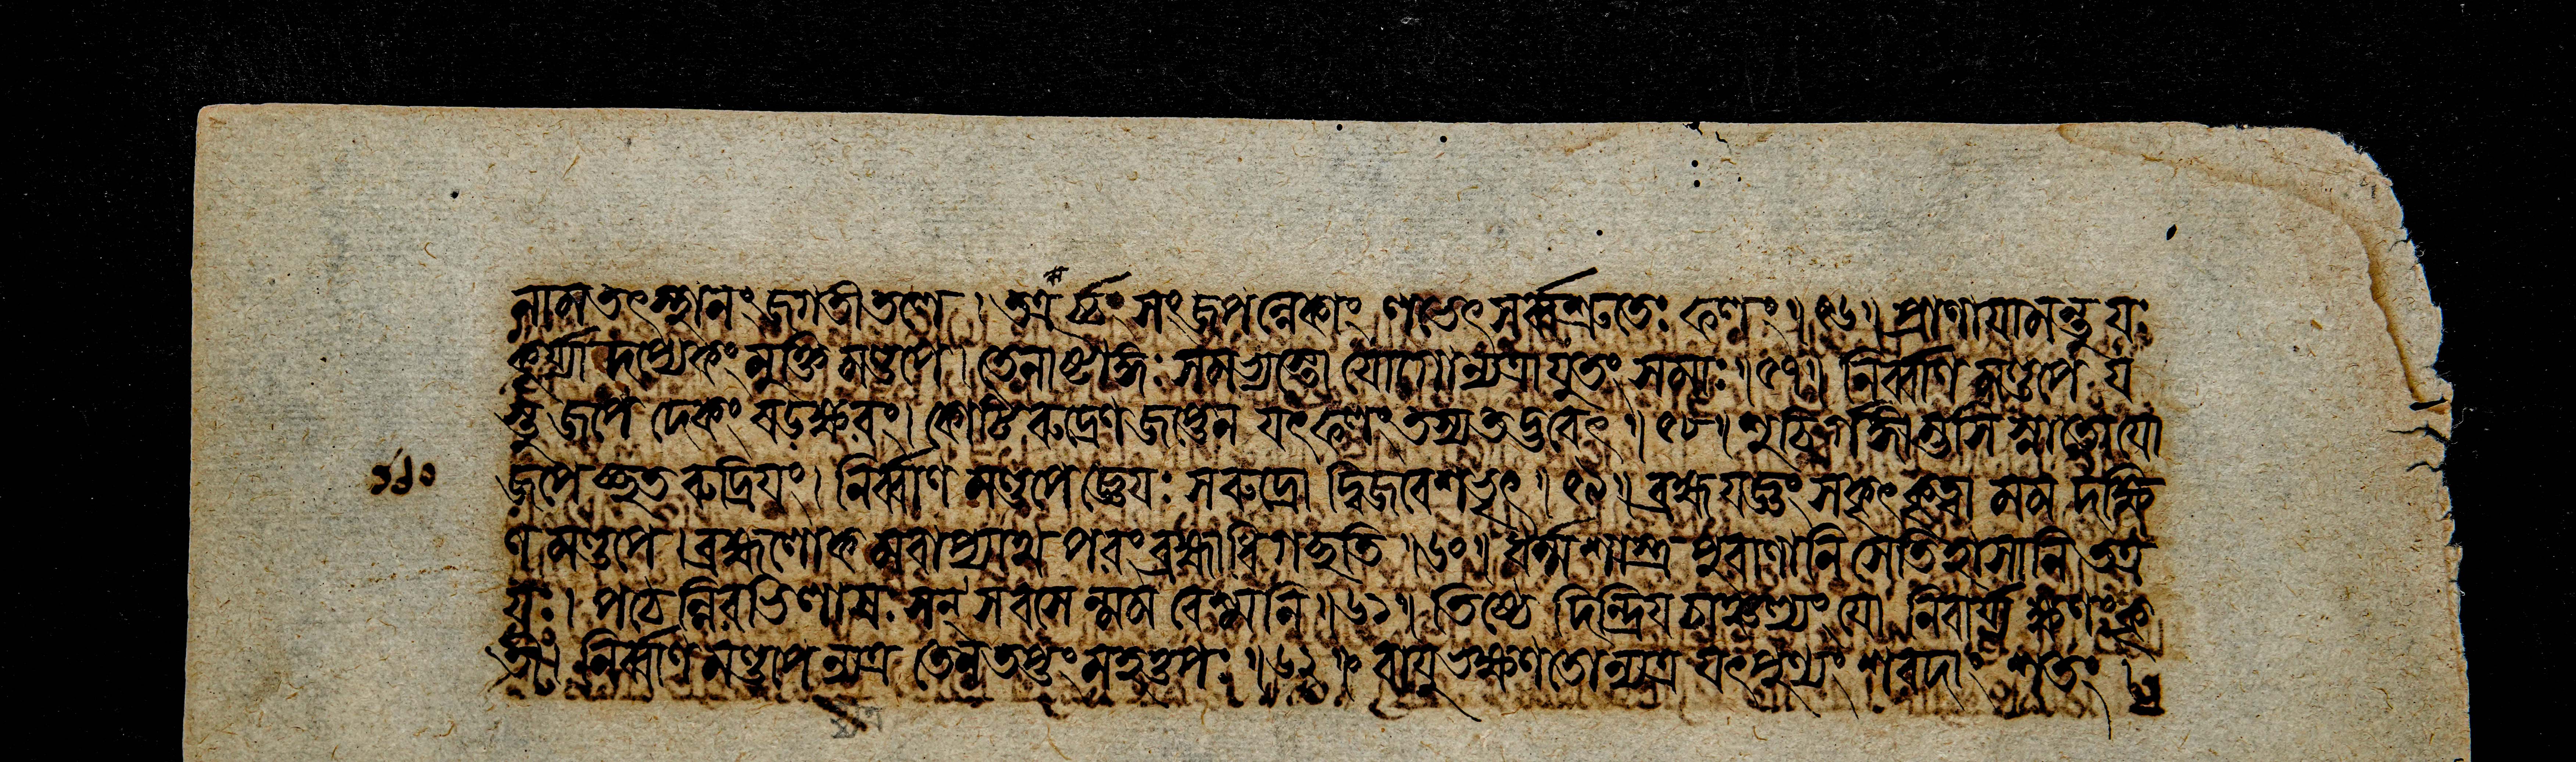 নাম তৎস্থানং জগতীতলে । তত্রর্চ্চং সংজপন্নেকাং লভেৎ সর্ব্বশ্রুতেঃ ফলং ॥ ৫৬ ॥ প্রাণায়ামন্তু যঃ
কুর্য্যাদপ্যেকং মুক্তিমণ্ডপে । তেনাষ্টাঙ্গঃ সমভ্যস্তো যোগোন্যত্রাযুতং সমাঃ ॥ ৫৭ ॥ নির্ব্বাণমণ্ডপে য
স্তু জপেদেকং ষডক্ষরং । কোটিরুদ্রেণ জপ্তেন যৎফলং তস্য তদ্ভবেৎ ॥ ৫৮ ॥ শুচির্গঙ্গাম্ভসি স্নাতো যো
জপেচ্ছতরুদ্রিয়ং । নির্ব্বাণমণ্ডপে জ্ঞেয়ঃ স রুদ্রো দ্বিজবেশভৃৎ ॥ ৫৯ ॥ ব্রহ্মযজ্ঞং সকৃৎকৃত্বা মম দক্ষি
ণমণ্ডপে । ব্রহ্মলোকমবাপ্যাথ পরং ব্রহ্মাধিগচ্ছতি ॥ ৬০ ॥ ধর্ম্মশাস্ত্রপুরাণানি সেতিহাসানি তত্র
যঃ । পঠেন্নিরভিলাষঃ সন্ স বসেন্মম বেশ্মনি ॥ ৬১ ॥ তিষ্ঠেদিন্দ্রিয়চাঞ্চল্যং যো নিবার্য্য ক্ষণং কৃ
তী । নির্ব্বাণমণ্ডপেন্যত্র তেন তপ্তং মহত্তপঃ ॥ ৬২ ॥ বায়ুভক্ষণতোন্যত্র যৎপুণ্যং শরদাং শতং ।
১৬০